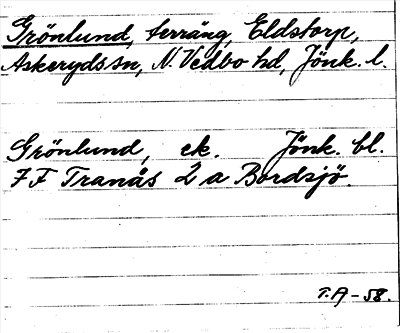 Grönlund, terräng, Eldstorp,
Askeryds sn, N. Vedbo hd, Jönk. l.
Grönlund, ek. Jönk. bl.
7 F Tranås 2 a Bordsjö.
T.A-58.